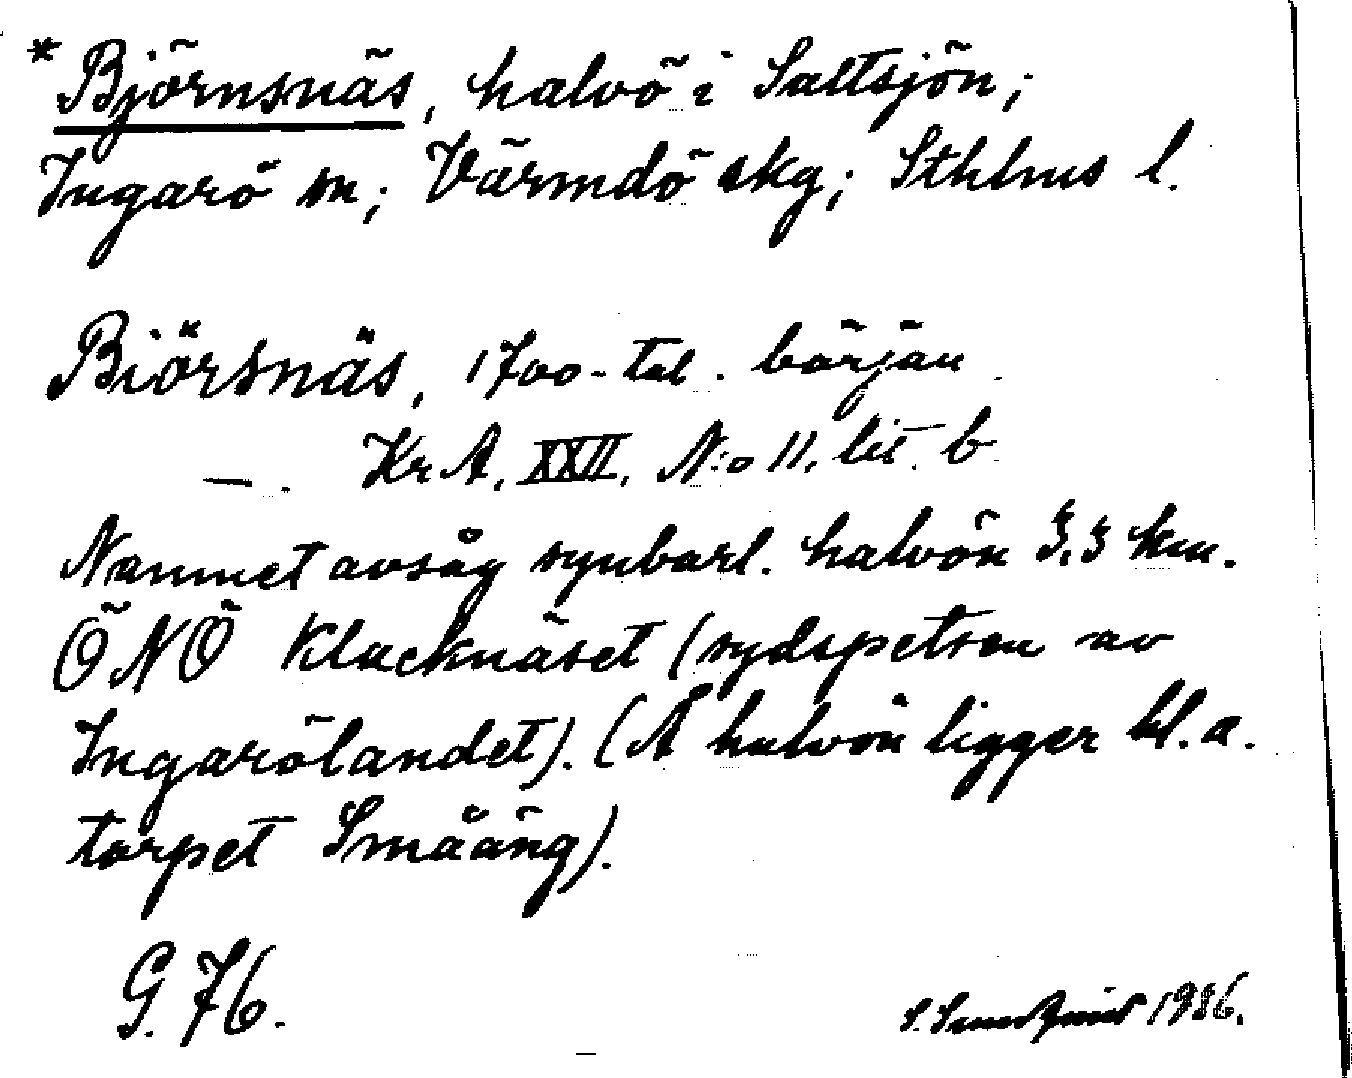 *Björnsnäs, halvö i Saltsjön;
Ingarö sn; Värmdö skg; Sthlms l.
Biörsnäs, 1700-tal. början
—. KrA, XXII, N:o 11, lit. b
Namnet avsåg synbarl. halvön 3,3 km.
ÖNÖ Klacknäset (sydspetsen av
Ingarölandet). (Å halvön ligger bl.a.
torpet Småäng).
G. 76.
1986.